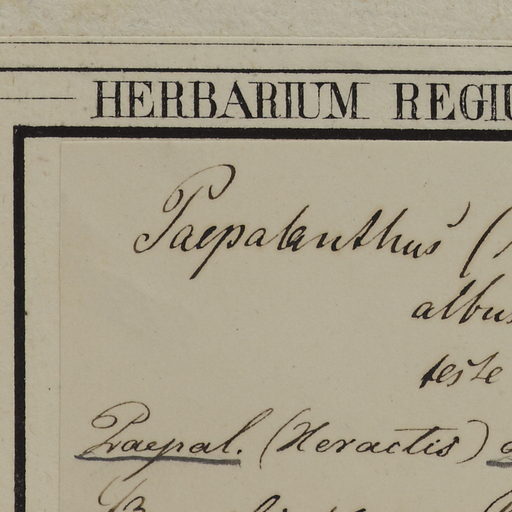 HERBARIUM REGIU
Paepalanthus (
albus
teste
Praepal. (Xeractis)